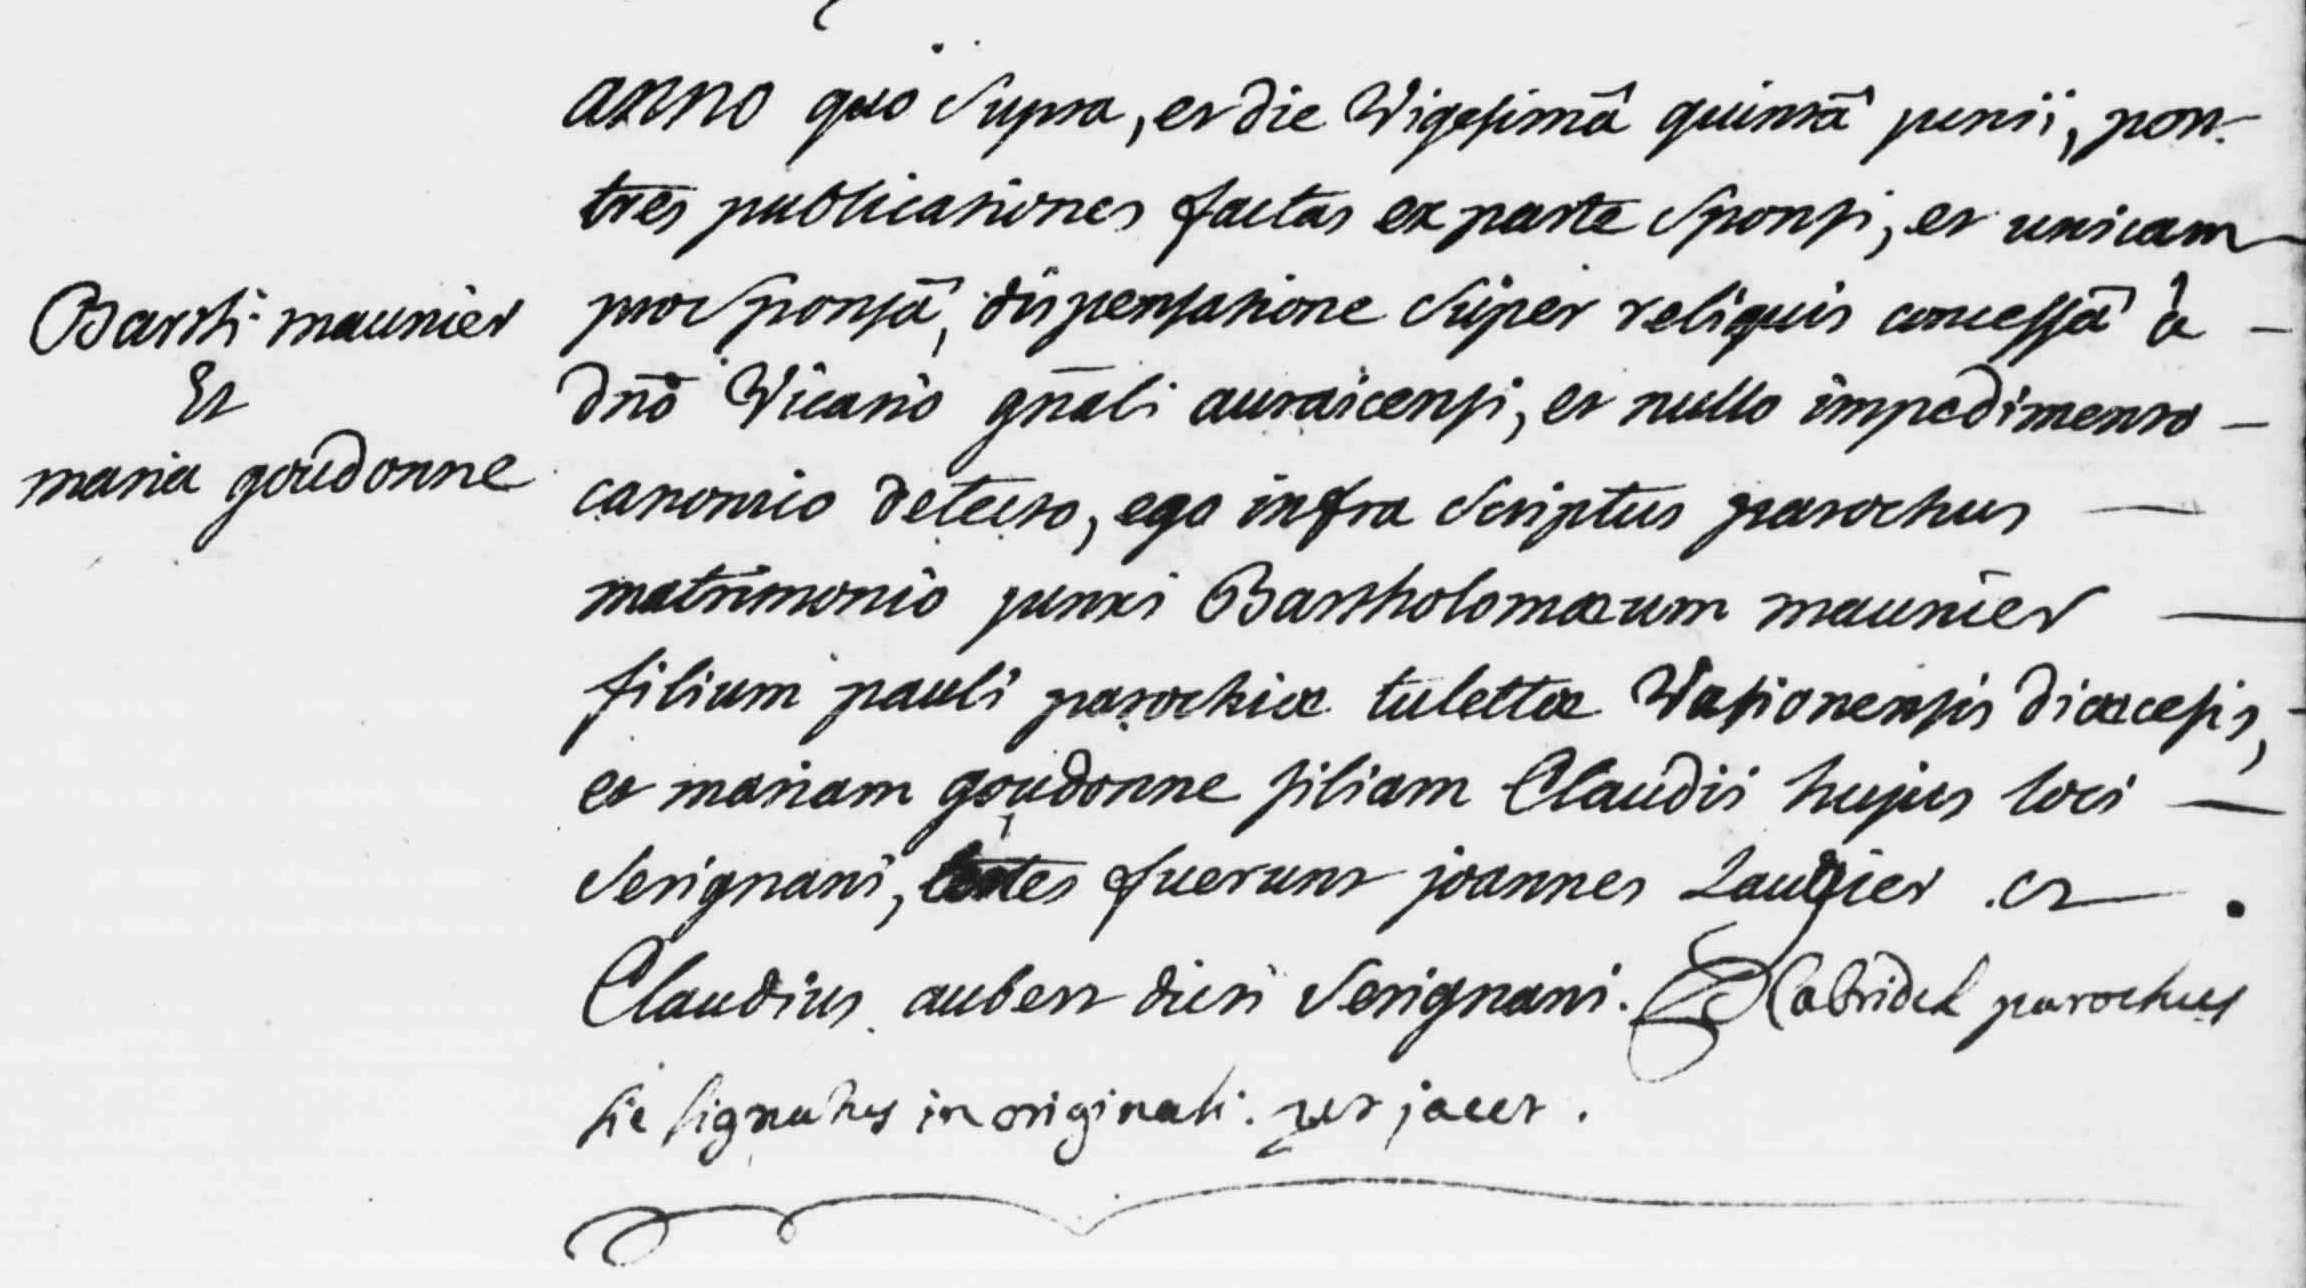 anno quo supra, et die Vigesimâ quintâ junii, post
tres publicationes factas ex parte sponsi, et unicam
Barthi maunier
pro sponsâ, dispensatione super reliquis concessâ à
Et
dnō Vicario gnāli auraicensi, et nullo impedimento
maria goudonne
canonico detecto, ego infra scriptus parochus
matrimonio junxi Bartholomæum maunier
filium pauli parochiæ tulettæ Vasionensis diœcesis,
et mariam goudonne filiam Claudii hujus loci
Serignani, testes fuerunt joannes Laugier et
Claudius aubert dicti Serignani. parochus
sic signatus in originali. jacet.